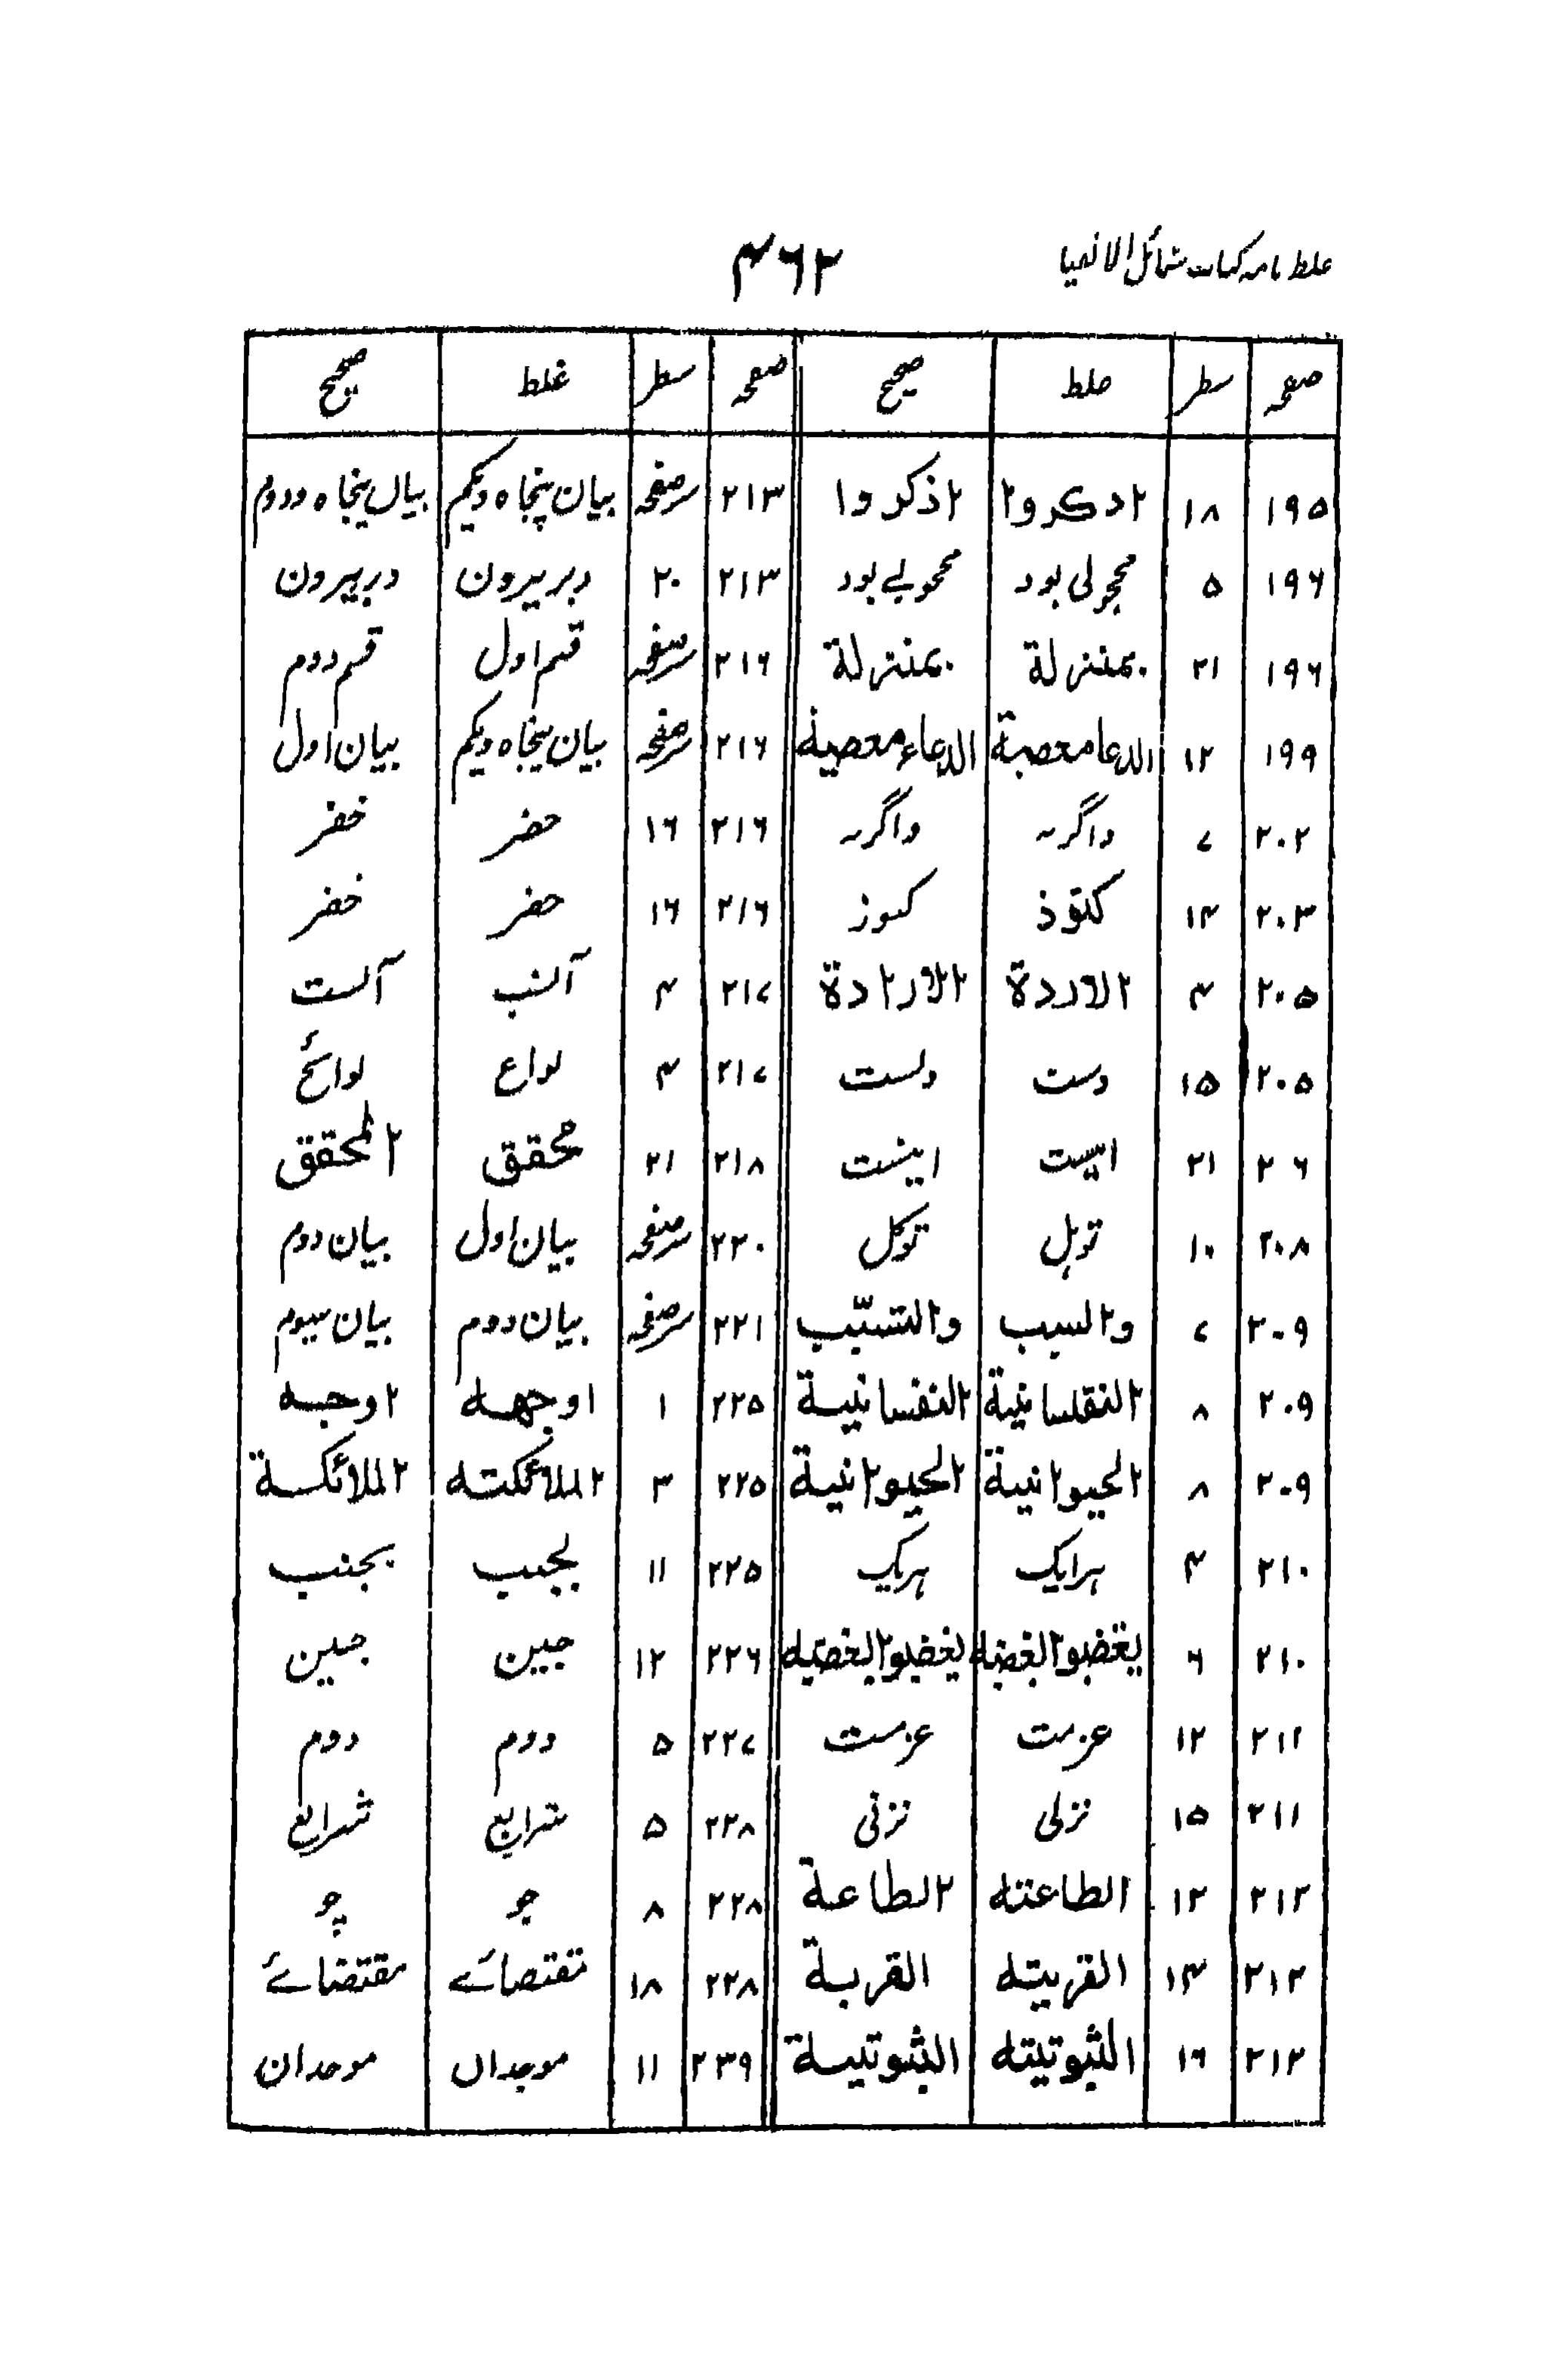 غلط نامہ کتاب شمائل الانقیا ۴۶۲
صفحہ سطر غلط صحیح صفحہ سطر غلط صحیح
۱۹۵ ۱۸ ادکروا اذکروا ۲۱۳ سرصفحہ بیان پنجاہ ویکم بیان پنجاہ ودوم
۱۹۶ ۵ بود بود ۲۱۳ ۲۰ دربیرون
۱۹۶ ۲۱ بمنزلة بمنزلة ۲۱۶ سرصفحہ قسم اول قسم دوم
۱۹۹ ۱۲ الدعا معصبة الدعاء معصية ۲۱۶ سرصفحہ بیان پنجاہ ویکم بیان اول
۲۰۲ ۷ واگرنہ ۲۱۶ ۱۶ حضر خضر
۲۰۳ ۱۴ کنوز ۲۱۶ ۱۶ حضر خضر
۲۰۵ ۴ الاردة الارادة ۲۱۷ ۴ الست
۲۰۵ ۱۵ دست دلست ۲۱۷ ۴ لواع لوائح
۲۰۶ ۲۱ اینست ۲۱۸ ۲۱ محقق المحقق
۲۰۸ ۱۰ توبل توکل ۲۲۰ سرصفحہ بیان اول بیان دوم
۲۰۹ ۷ والسبب والتسبّب ۲۲۱ سرصفحہ بیان دوم بیان سیوم
۲۰۹ ۸ النقلسانية النفسانية ۲۲۵ ۱ اوجهه اوجبه
۲۰۹ ۸ الحيوانية الحيوانية ۲۲۵ ۳ الملائکته الملائکة
۲۱۰ ۴ ہرایک ہریک ۲۲۵ ۱۱ بجنب
۲۱۰ ۶ ۲۲۶ ۱۲ جبین
۲۱۱ ۱۲ عزمت ۲۲۷ ۵ دوم دوم
۲۱۱ ۱۵ نزلی نزنی ۲۲۸ ۵ شرایع
۲۱۲ ۱۲ الطاعته الطاعة ۲۲۸ ۸ جو چو
۲۱۲ ۱۴ القربته القربة ۲۲۸ ۱۸ تقتصائے مقتضائے
۲۱۲ ۱۶ الثبوتيته الثبوتية ۲۳۹ ۱۱ موجداں موحدان